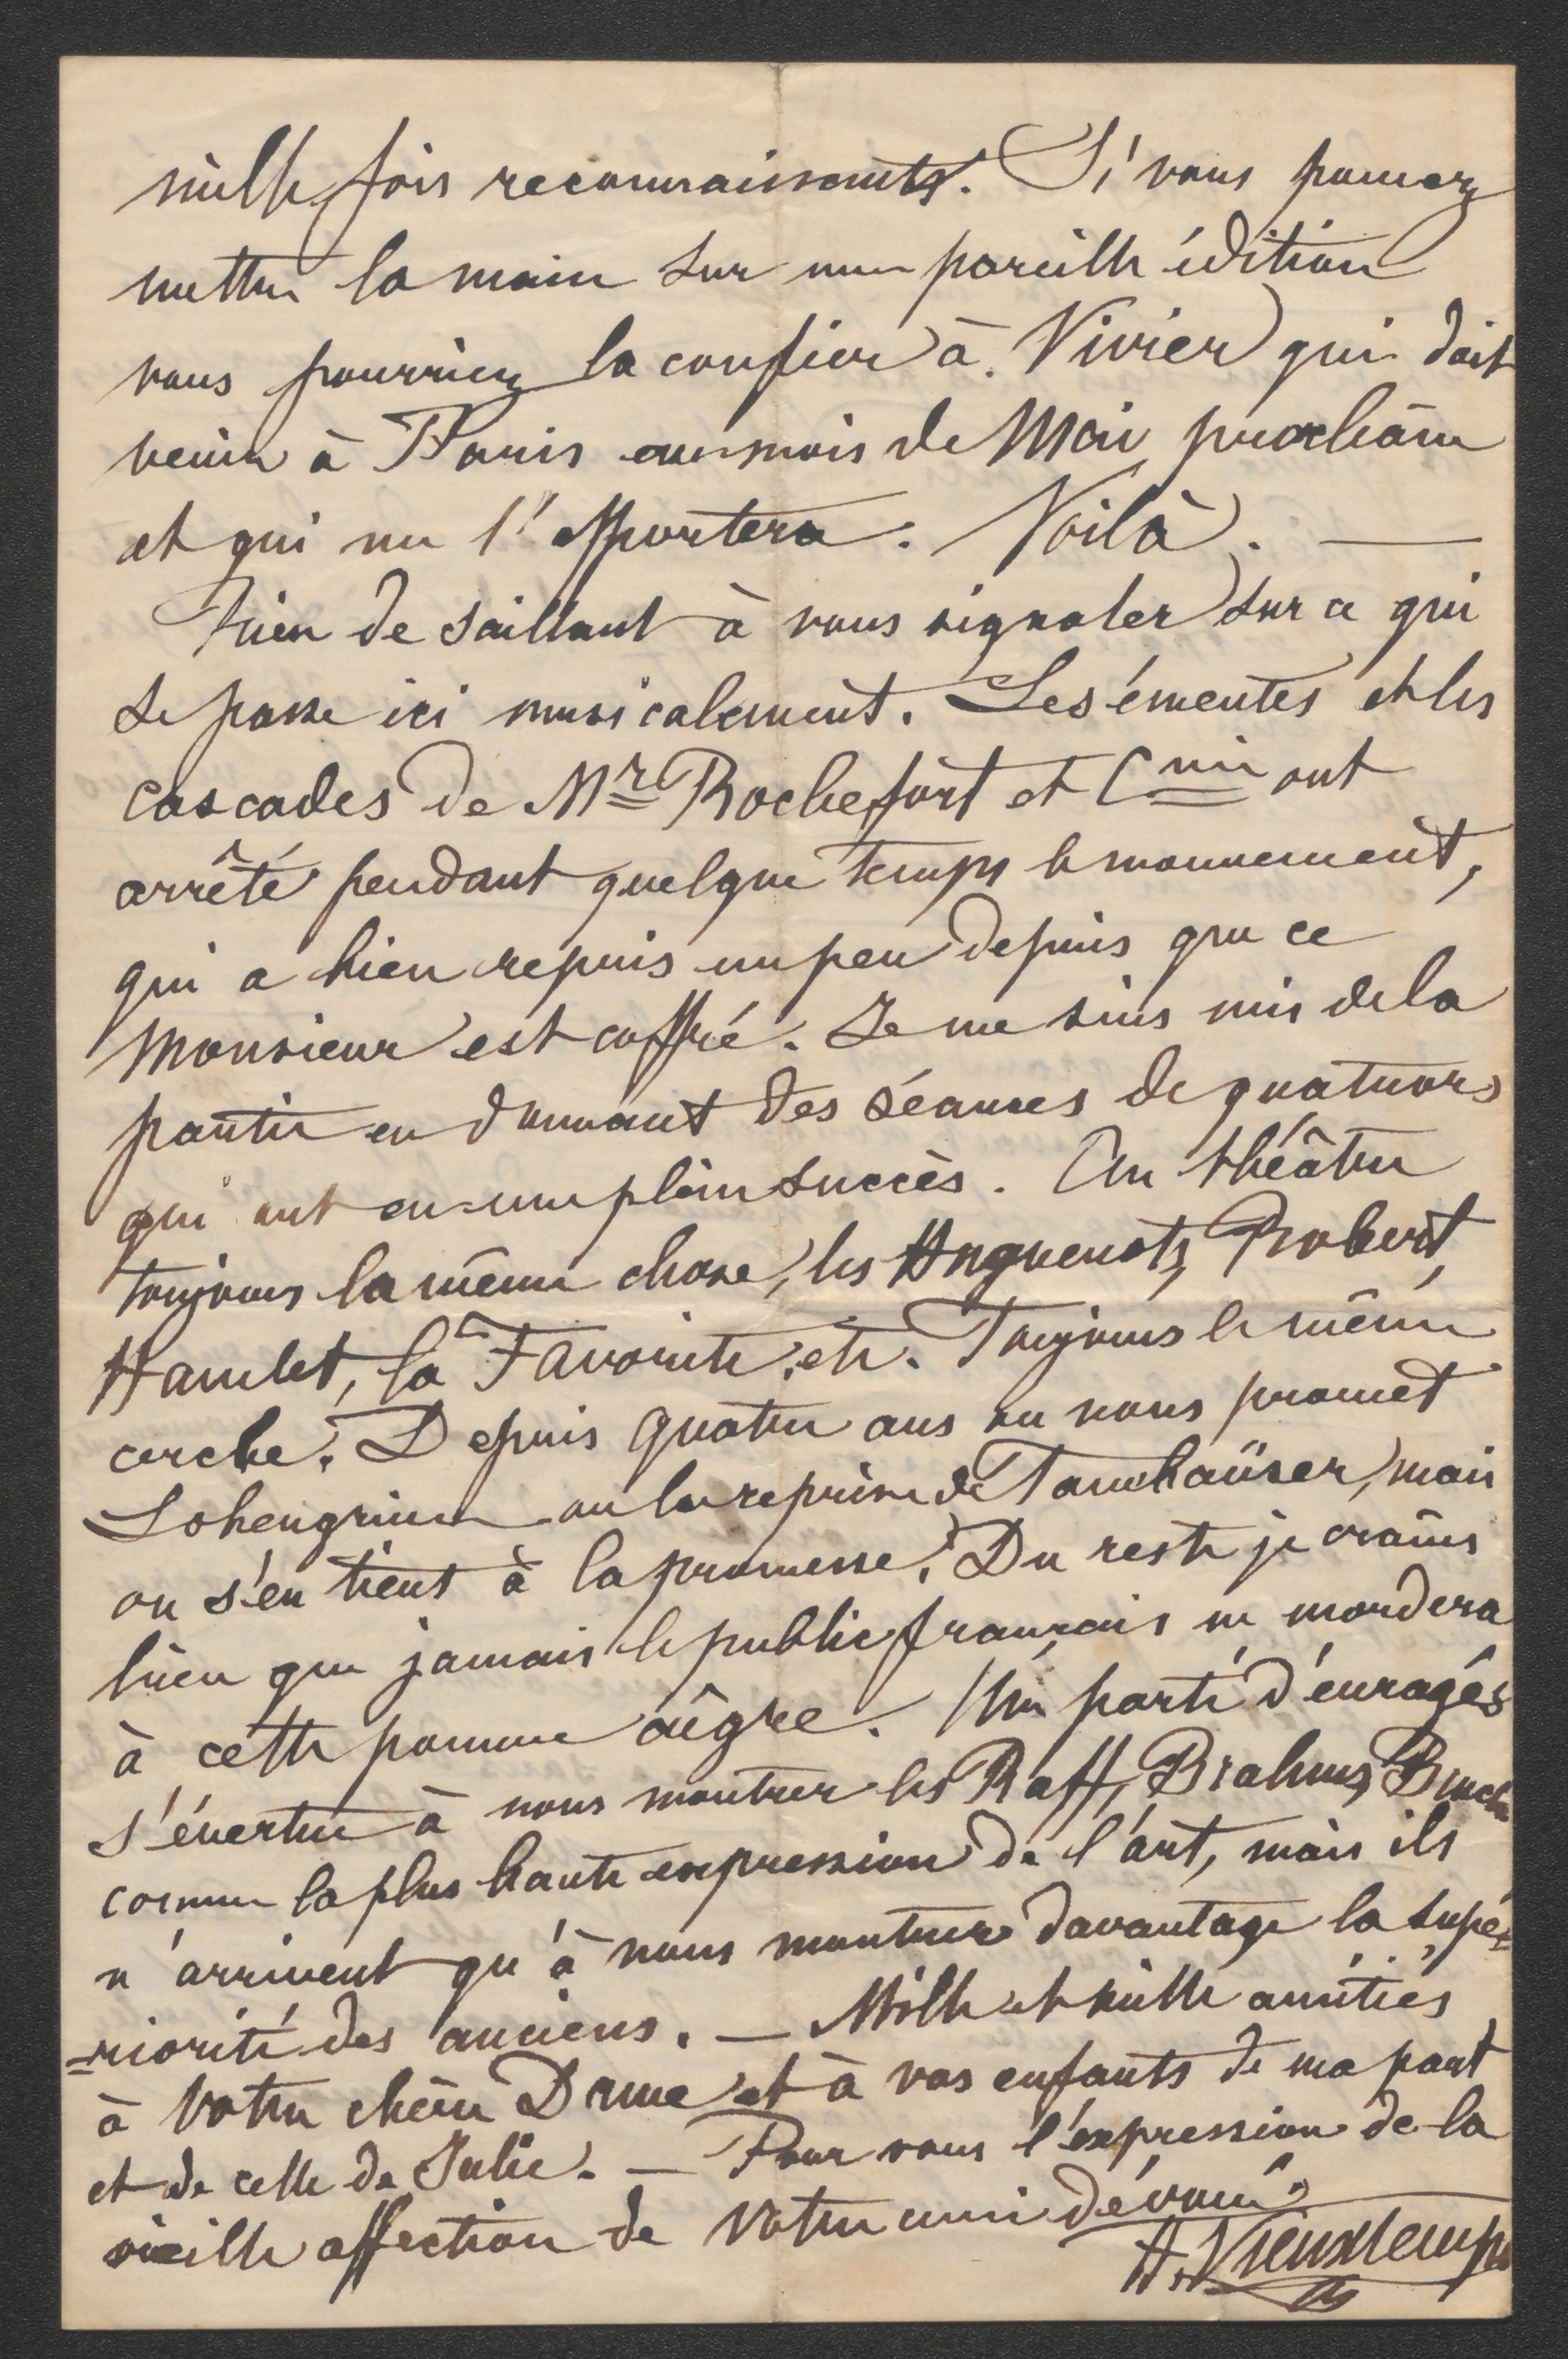 mille fois reconnaissants. Si vous pouvez
mettre la main sur une pareille édition
vous pourriez la confier à Vivier qui doit
venir à Paris au mois de Mai prochain
et qui me l'apportera. Voilà. —
Rien de saillant à vous signaler sur ce qui
se passe ici musicalement. Les émeutes et les
cascades de Mr Rochefort et Cnie ont
arrêté pendant quelque temps le mouvement,
qui a bien repris un peu depuis que ce
Monsieur est coffré. Je me suis mis de la
partie en donnant des séances de quatuors
qui ont eu un plein succès. Au théâtre
toujours la même chose, les Huguenots, Robert,
Hamlet, la Favorite, etc. Toujours le même
cercle. Depuis quatre ans on nous promet
Lohengrinn ou la reprise de Tannhaüser, mais
on s'en tient à la promesse. Du reste je crains
bien que jamais le public français ne mordera
à cette pomme aîgre. Un parti d'enragés
s'évertue à nous montrer les Raff, Brahms, Bruch
comme la plus haute expression de l'art, mais ils
n'arrivent qu'à nous montrer davantage la supé=
=riorité des anciens. — Mille et mille amitiés
à votre chère Dame et à vos enfants de ma part
et de celle de Julie. — Pour vous l'expression de la
vieille affection de votre ami dévoué
H. Vieuxtemps